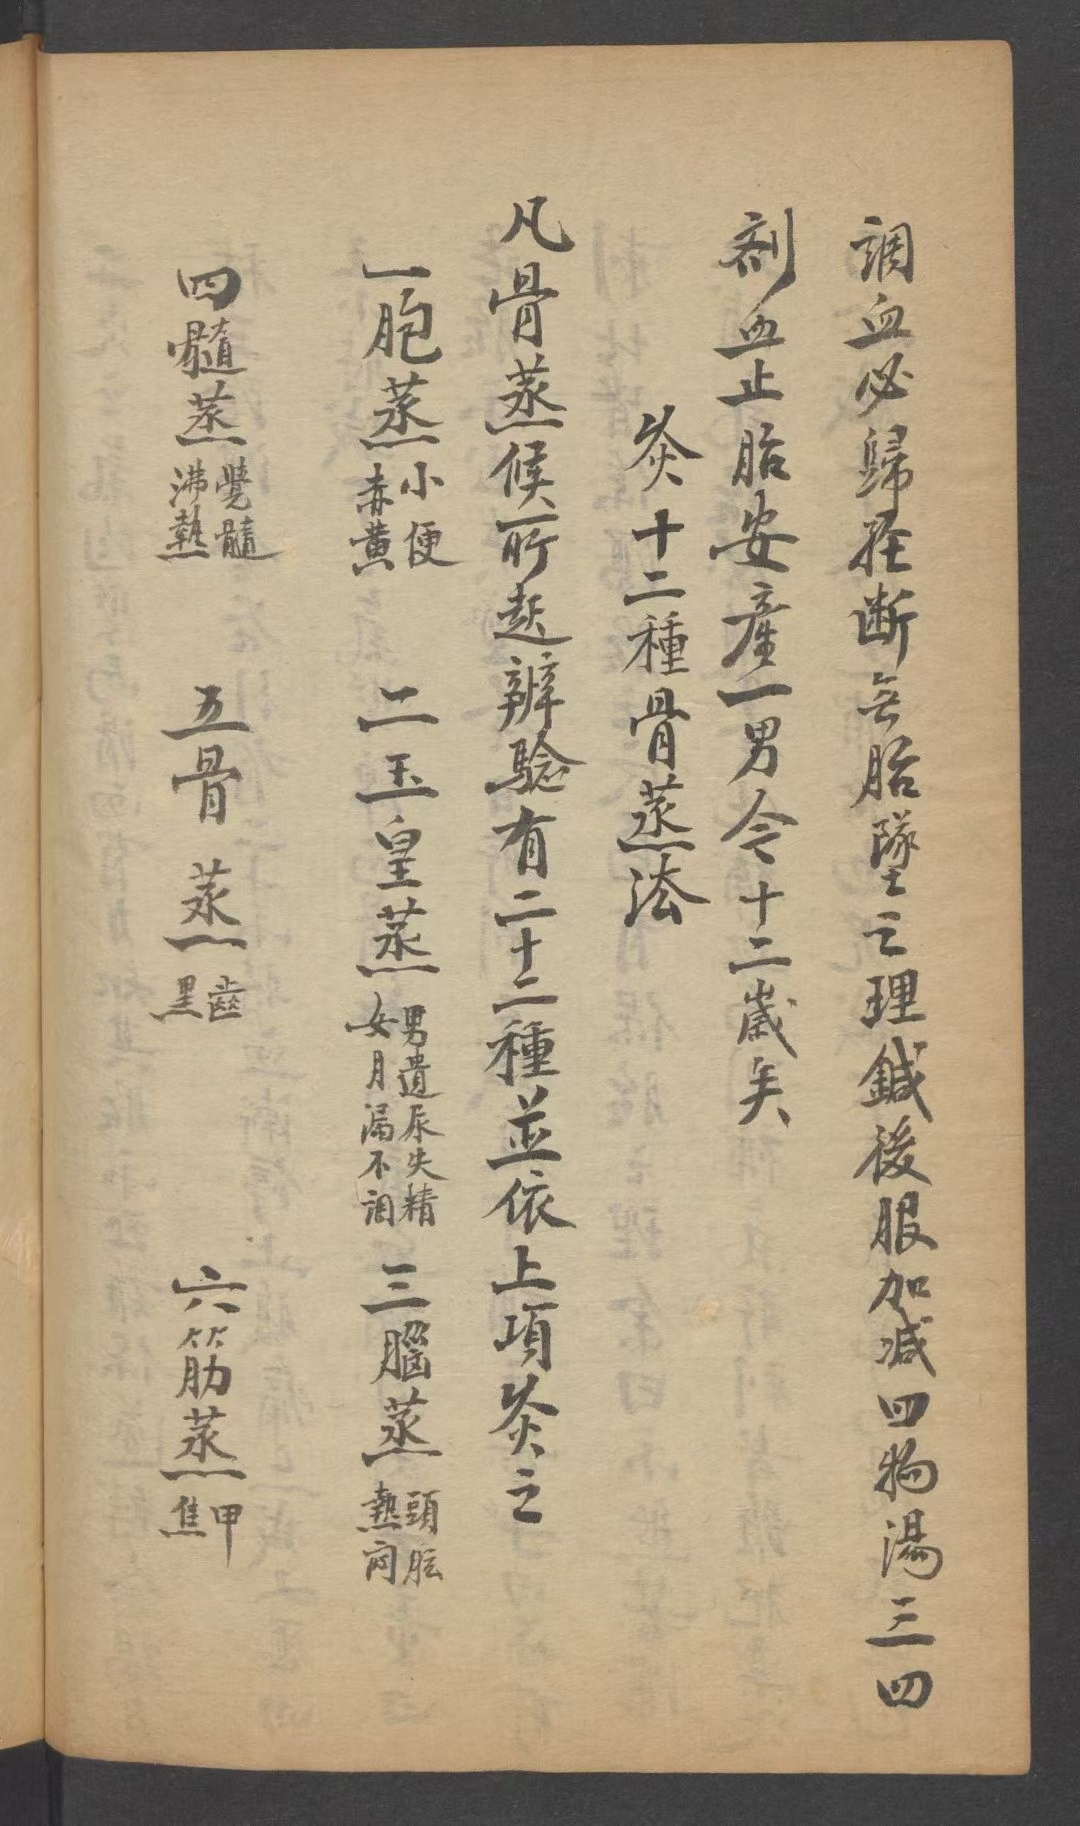 調血必歸經斷無胎墜之理鍼後服加减四物湯三四
劑血止胎安產一男今十二歲矣
灸十二種骨蒸法
凡骨蒸候所起辨驗有二十二種並依上項灸之
一胞蒸小便赤黄 二玉皇蒸男遺尿失精女月漏不調 三腦蒸頭眩熱悶
四髓蒸覺髓沸熱 五骨蒸齒黑 六筋蒸甲焦